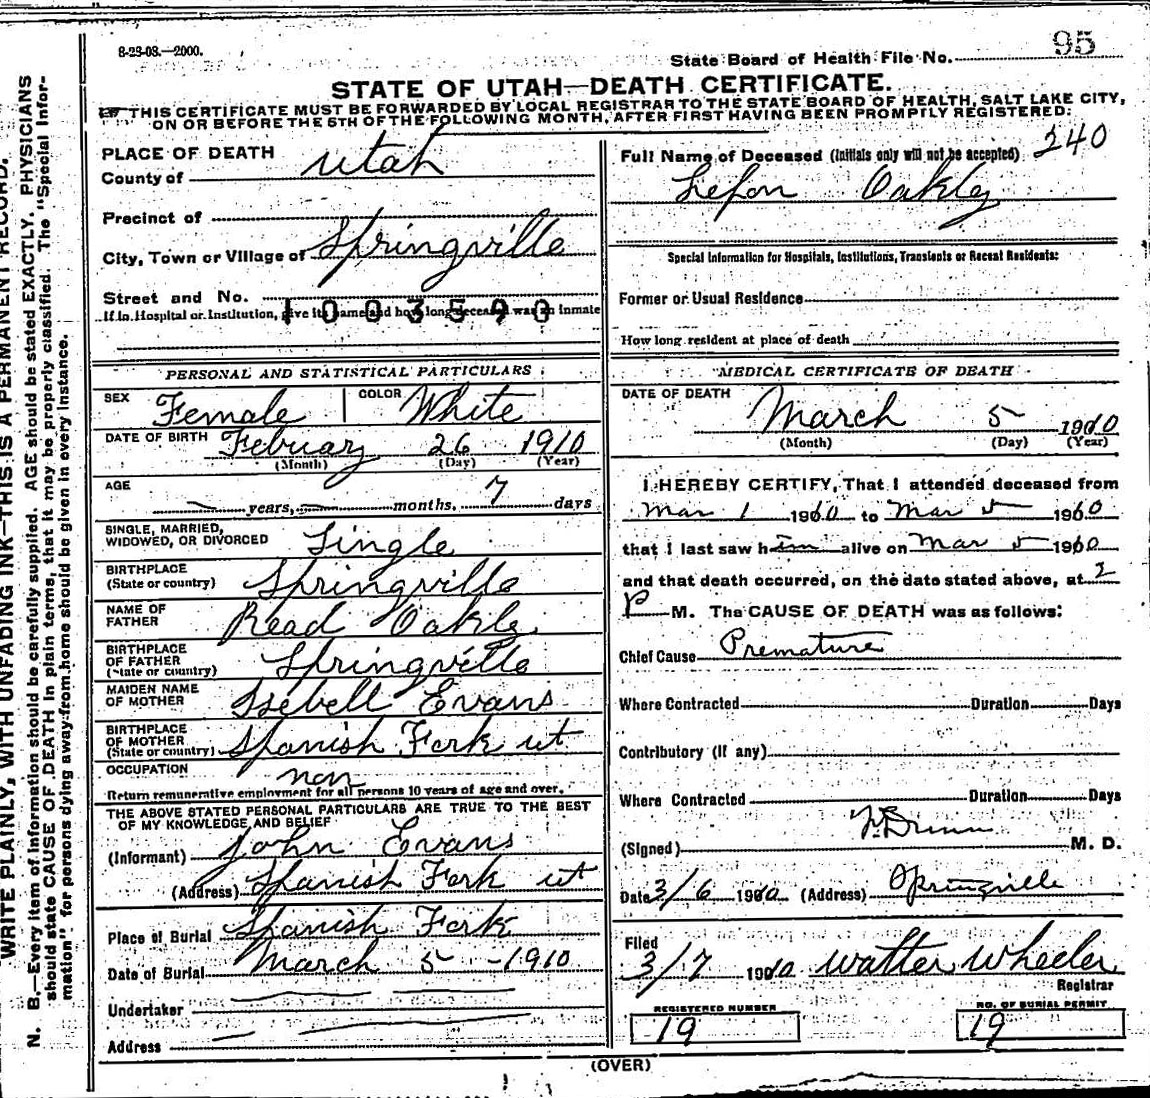 8-23-08.—2000.
State Board of Health File No. 95
STATE OF UTAH—DEATH CERTIFICATE.
THIS CERTIFICATE MUST BE FORWARDED BY LOCAL REGISTRAR TO THE STATE BOARD OF HEALTH, SALT LAKE CITY,
ON OR BEFORE THE 5TH OF THE FOLLOWING MONTH, AFTER FIRST HAVING BEEN PROMPTLY REGISTERED:
PLACE OF DEATH
County of Utah
Precinct of
City, Town or Village of Springville
Street and No.
1003590
If in Hospital or Institution, give its name and how long deceased was an inmate
PERSONAL AND STATISTICAL PARTICULARS
SEX Female COLOR White
DATE OF BIRTH Febuary 26 1910
(Month) (Day) (Year)
AGE
years, months, 7 days
SINGLE, MARRIED,
WIDOWED, OR DIVORCED Single
BIRTHPLACE
(State or country) Springville
NAME OF
FATHER Read Oakly
BIRTHPLACE
OF FATHER
(State or country) Springville
MAIDEN NAME
OF MOTHER Isebell Evans
BIRTHPLACE
OF MOTHER
(State or country) Spanish Fork ut
OCCUPATION non
Return remunerative employment for all persons 10 years of age and over.
THE ABOVE STATED PERSONAL PARTICULARS ARE TRUE TO THE BEST
OF MY KNOWLEDGE AND BELIEF
(Informant) John Evans
(Address) Spanish Fork ut
Place of Burial Spanish Fork
Date of Burial March 5 - 1910
Undertaker
Address
Full Name of Deceased (Initials only will not be accepted) 240
Oakly
Special Information for Hospitals, Institutions, Transients or Recent Residents:
Former or Usual Residence
How long resident at place of death
MEDICAL CERTIFICATE OF DEATH
DATE OF DEATH
March 5 1910
(Month) (Day) (Year)
I HEREBY CERTIFY, That I attended deceased from
Mar 1 1910 to Mar 5 1910
that I last saw him alive on Mar 5 1910
and that death occurred, on the date stated above, at 2
P M. The CAUSE OF DEATH was as follows:
Chief Cause Premature
Where Contracted Duration Days
Contributory (if any)
Where Contracted Duration Days
(Signed) Dunn M. D.
Date 3/6 1910 (Address) Springville
Filed
3/7 1910 Walter Wheeler
Registrar
REGISTERED NUMBER
19
NO. OF BURIAL PERMIT
19
(OVER)
WRITE PLAINLY, WITH UNFADING INK—THIS IS A PERMANENT RECORD.
N. B.—Every item of information should be carefully supplied. AGE should be stated EXACTLY. PHYSICIANS
should state CAUSE OF DEATH in plain terms, that it may be properly classified. The "Special Infor-
mation" for persons dying away from home should be given in every instance.